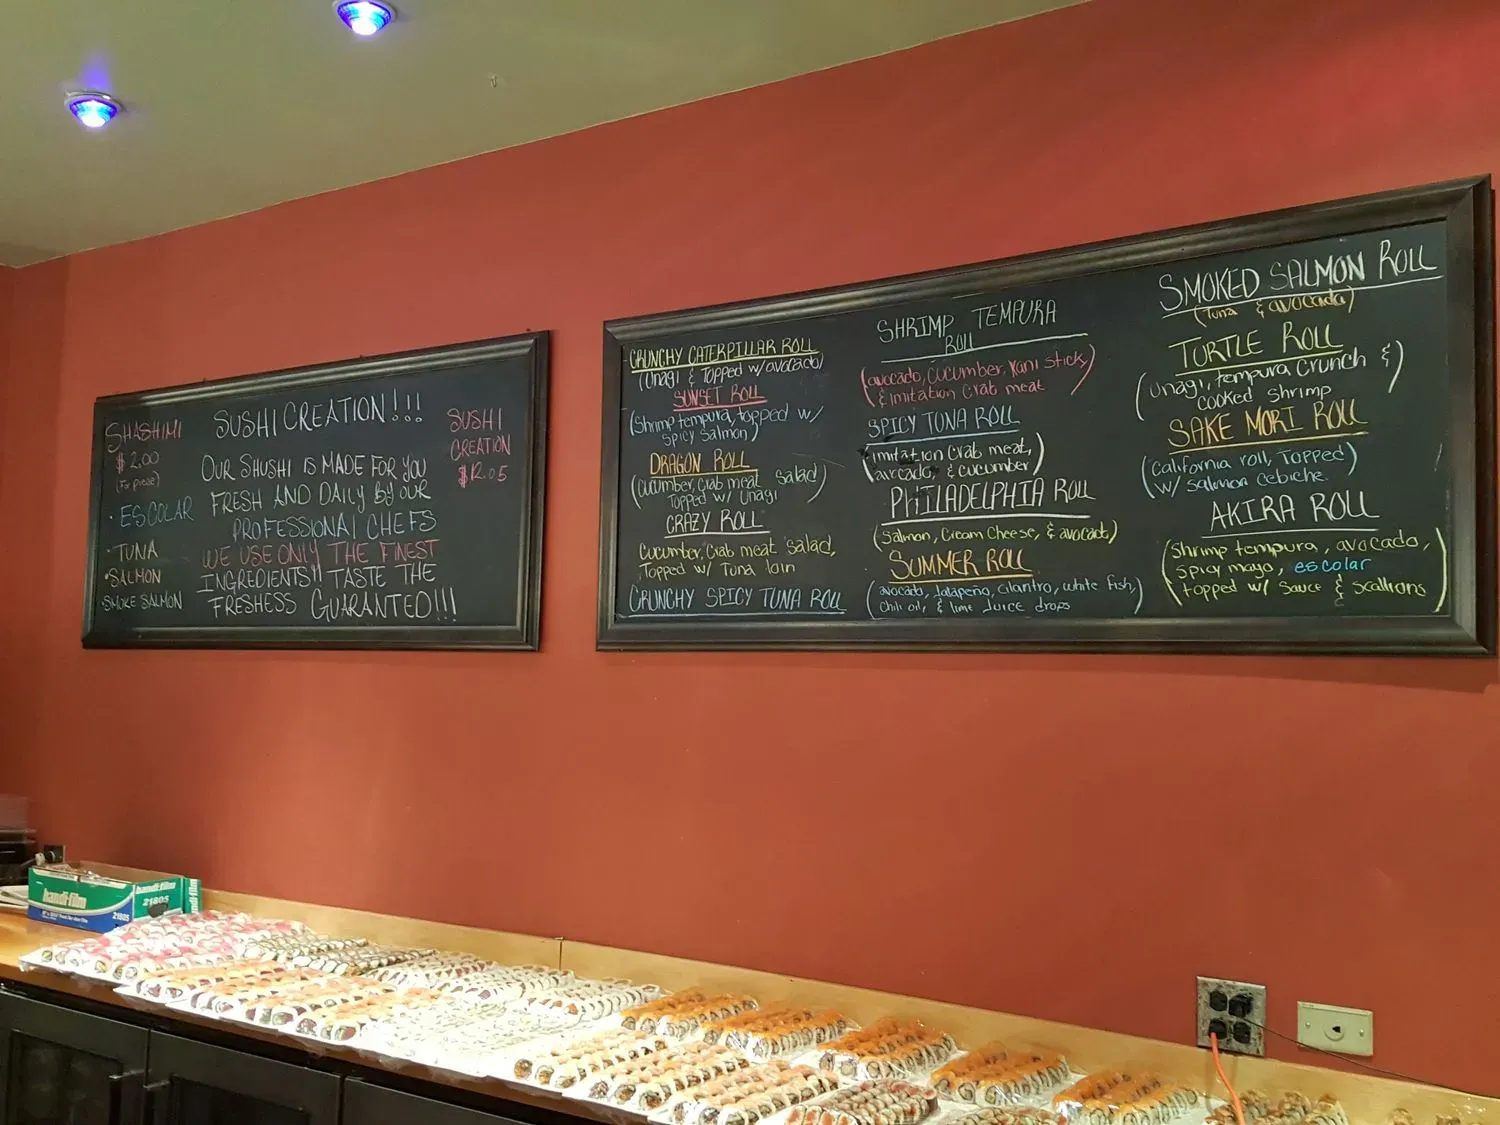 SHASHIMI
$2.00
(For piece)
• ESCOLAR
• TUNA
• SALMON
• SMOKE SALMON
SUSHI CREATION!!!
OUR SHUSHI IS MADE FOR YOU
FRESH AND DAILY by OUR
PROFESSIONAL CHEFS
WE USE ONLY THE FINEST
INGREDIENTS!! TASTE THE
FRESHESS GUARANTED!!!
SUSHI
CREATION
$12.05
CRUNCHY CATERPILLAR ROLL
(Unagi & Topped w/ avocado)
SUNSET ROLL
(Shrimp tempura, topped w/
spicy Salmon)
DRAGON ROLL
(Cucumber, Crab meat Salad
Topped w/ Unagi)
CRAZY ROLL
Cucumber, Crab meat Salad,
Topped w/ Tuna loin
CRUNCHY SPICY TUNA ROLL
SHRIMP TEMPURA
ROLL
(avocado, cucumber, Kani Stick,
& imitation Crab meat)
SPICY TUNA ROLL
(imitation Crab meat,
avocado, & cucumber)
PHILADELPHIA ROLL
(Salmon, Cream Cheese, & avocado)
SUMMER ROLL
(avocado, Jalapeño, cilantro, white fish,
Chili oil, & lime Juice drops)
SMOKED SALMON ROLL
(Tuna & avocado)
TURTLE ROLL
(Unagi, tempura Crunch &
cooked Shrimp)
SAKE MORI ROLL
(California roll, Topped
w/ Salmon Cebiche)
AKIRA ROLL
(Shrimp tempura, avocado,
spicy mayo, escolar
topped w/ Sauce & Scallions)
handi-film
21805
handi-film
21805